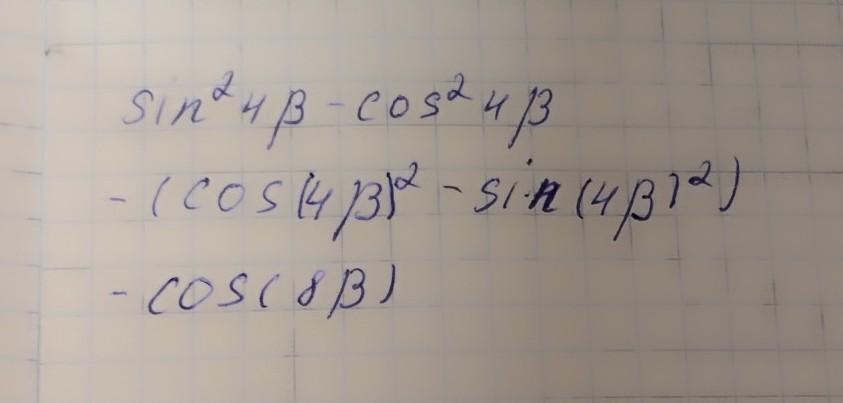 sin²4β - cos²4β
-(cos(4β)² - sin(4β)²)
-cos(8β)